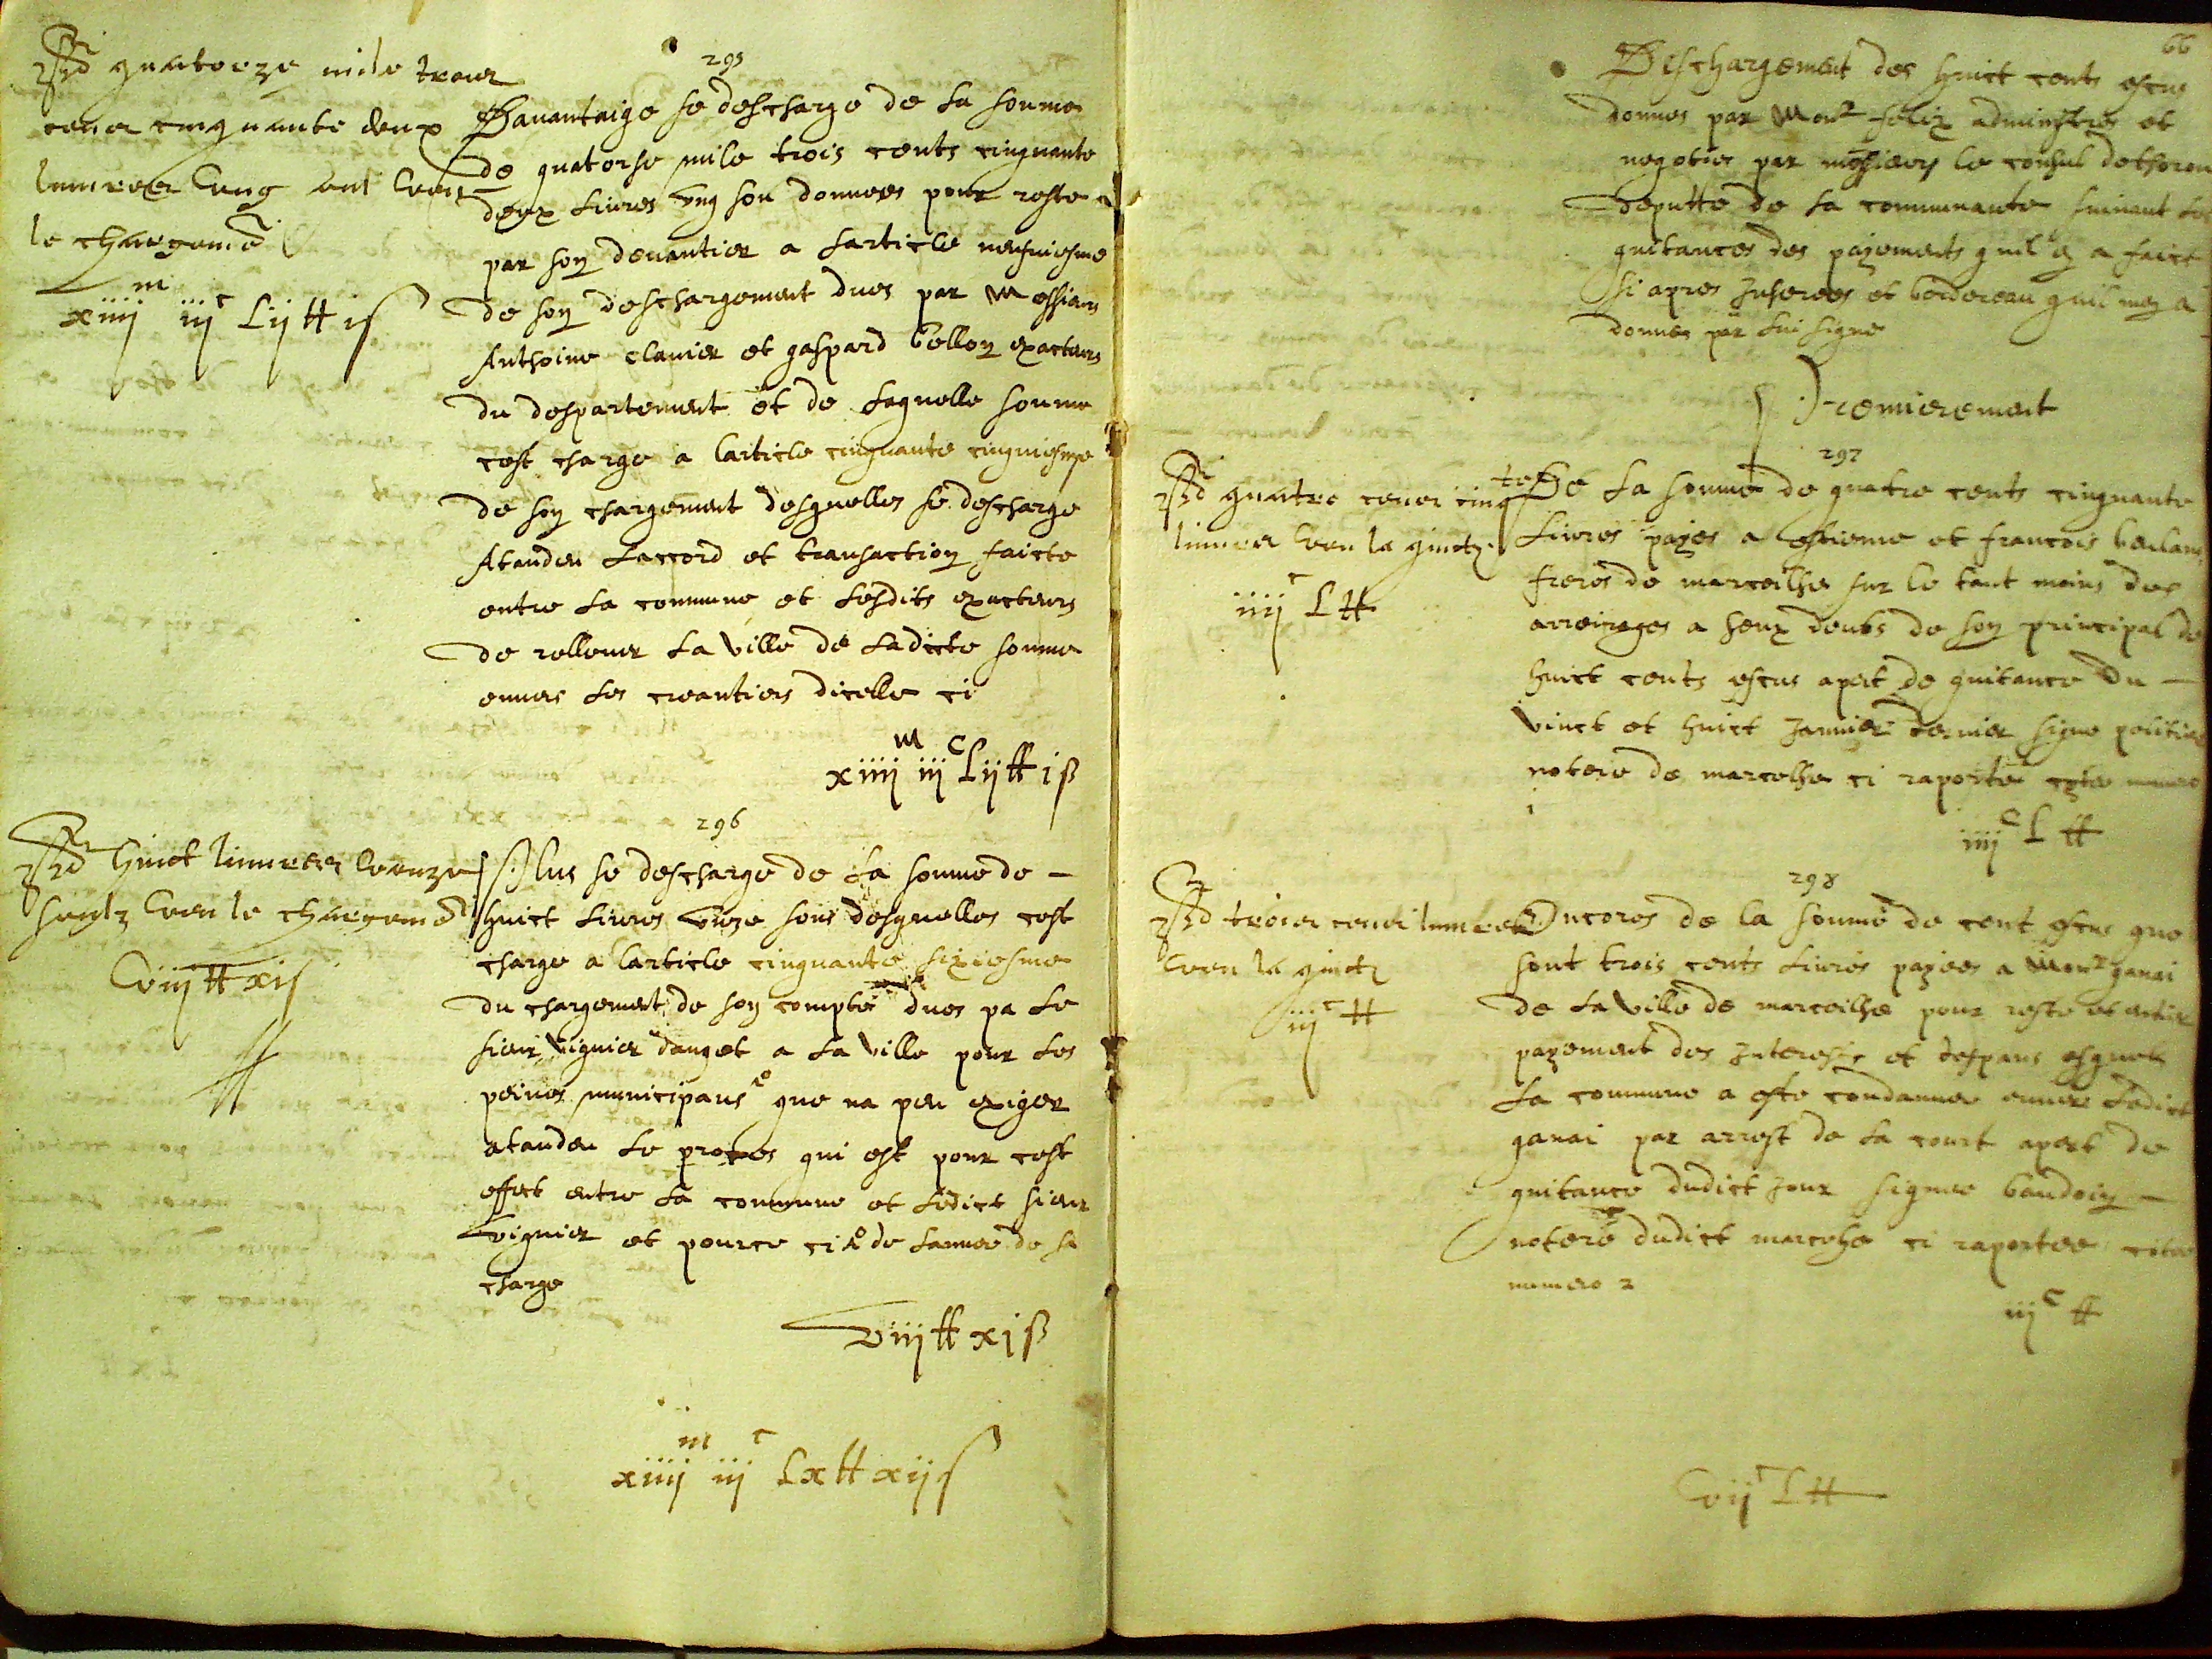 295
quatorze mile trois
cens cinquante deux
livres ung sol veu
le chargemẽ
xiiij m iij c Lij tt i s
Davantaige se descharge de la somme
de quatorse mile trois cents cinquante
deux livres ung sou donnees pour reste
par son devantier a larticle
de son deschargement dues par Messieurs
Anthoine clavier et gaspard bellon exacteurs
du despartement et de laquelle somme
cest charge a larticle cinquante cinquiesme
de son chargement desquelles se descharge
Atandeu laccord et transaction faicte
entre la commune et lesdits exacteurs
de rellever la ville de ladicte somme
envers les creantiers dicelle ci
xiiij m iij c Lij tt i s
296
huict livres unze
soulz veu le chargemẽ
viij tt xi s
Plus se descharge de la somme de
huict livres unze sous desquelles cest
charge a larticle cinquante sixiesme
du chargement de son compte dues pa le
sieur viguier dauget a la ville pour les
peines municipaus que na peu exiger
atandeu le proces qui est pour cest
effect entre la commune et ledict sieur
viguier et pource ci de lannee de sa
charge
viij tt xi s
xiiij m iij c Lx tt xij s
66
Deschargement des huict cents escus
donnes par Monr felix administres et
negoties par messieurs le consul
deputte de la communaute suivant les
quitances des payements quil en a faict
si apres Inserees et bordereau quil mey a
donnes par lui signe
Premierement
297
quatre cens cinq te
livres veu la quictz
iiij c L tt
De la somme de quatre cents cinquante
livres payes a estienne et francois
freres de marceilhe sur le tant moins des
arreirages a seux deubs de son principal de
huict cents escus apert de quitance du
vinct et huict Janvier dernier signe
notere de marcelhe ci raporte
i
iiij c L tt
298
trois cens livres
veu la quictz
iij c tt
Encores de la somme de cent escus que
sont trois cents livres payees a Monr ganai
de la ville de marceilhe pour reste et entier
payement des Interests et despans esquels
la commune a este condamnee envers ledict
ganai par arrest de la court apert de
quitance dudict Jour signee baudoin
notere dudict marcelhe ci raportee cotee
numero 2
iij c tt
vij c L tt